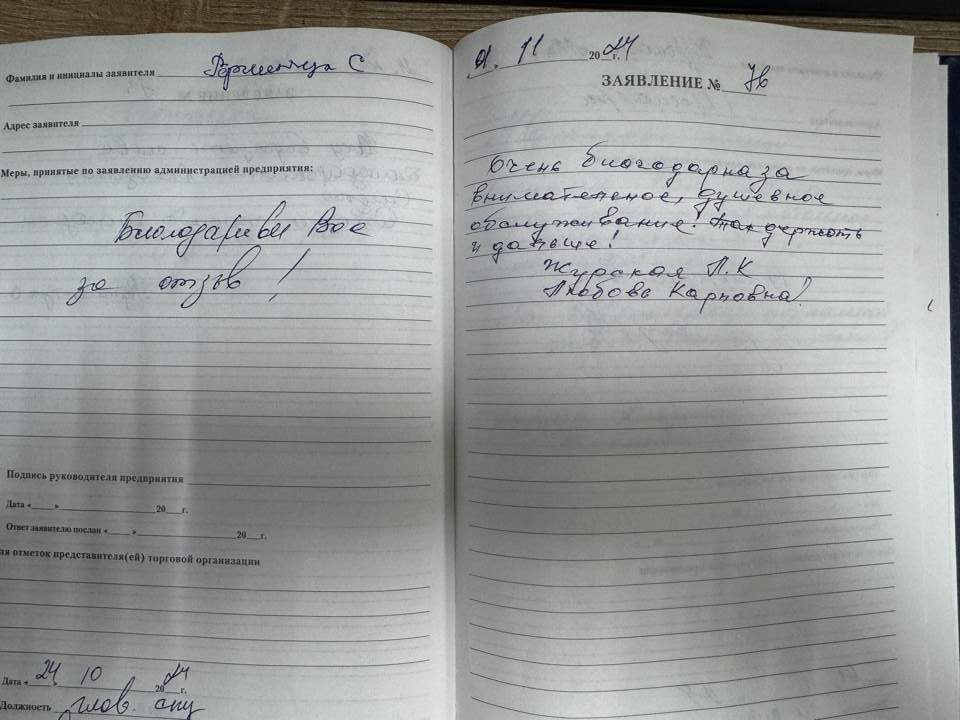 Фамилия и инициалы заявителя С
Адрес заявителя
Меры, принятые по заявлению администрацией предприятия:
Благодарим Вас
за отзыв!
Подпись руководителя предприятия
Дата «___» 20__г.
Ответ заявителю послан «___» 20__г.
ая отметок представителя(ей) торговой организации
Дата «24» 10 2024г.
Должность глав.
11 2024г.
ЗАЯВЛЕНИЕ № 76
Очень благодарна за
внимательное, душевное
обслуживание! Так держать
и дальше!
Журская Л.К
Любовь Карповна!